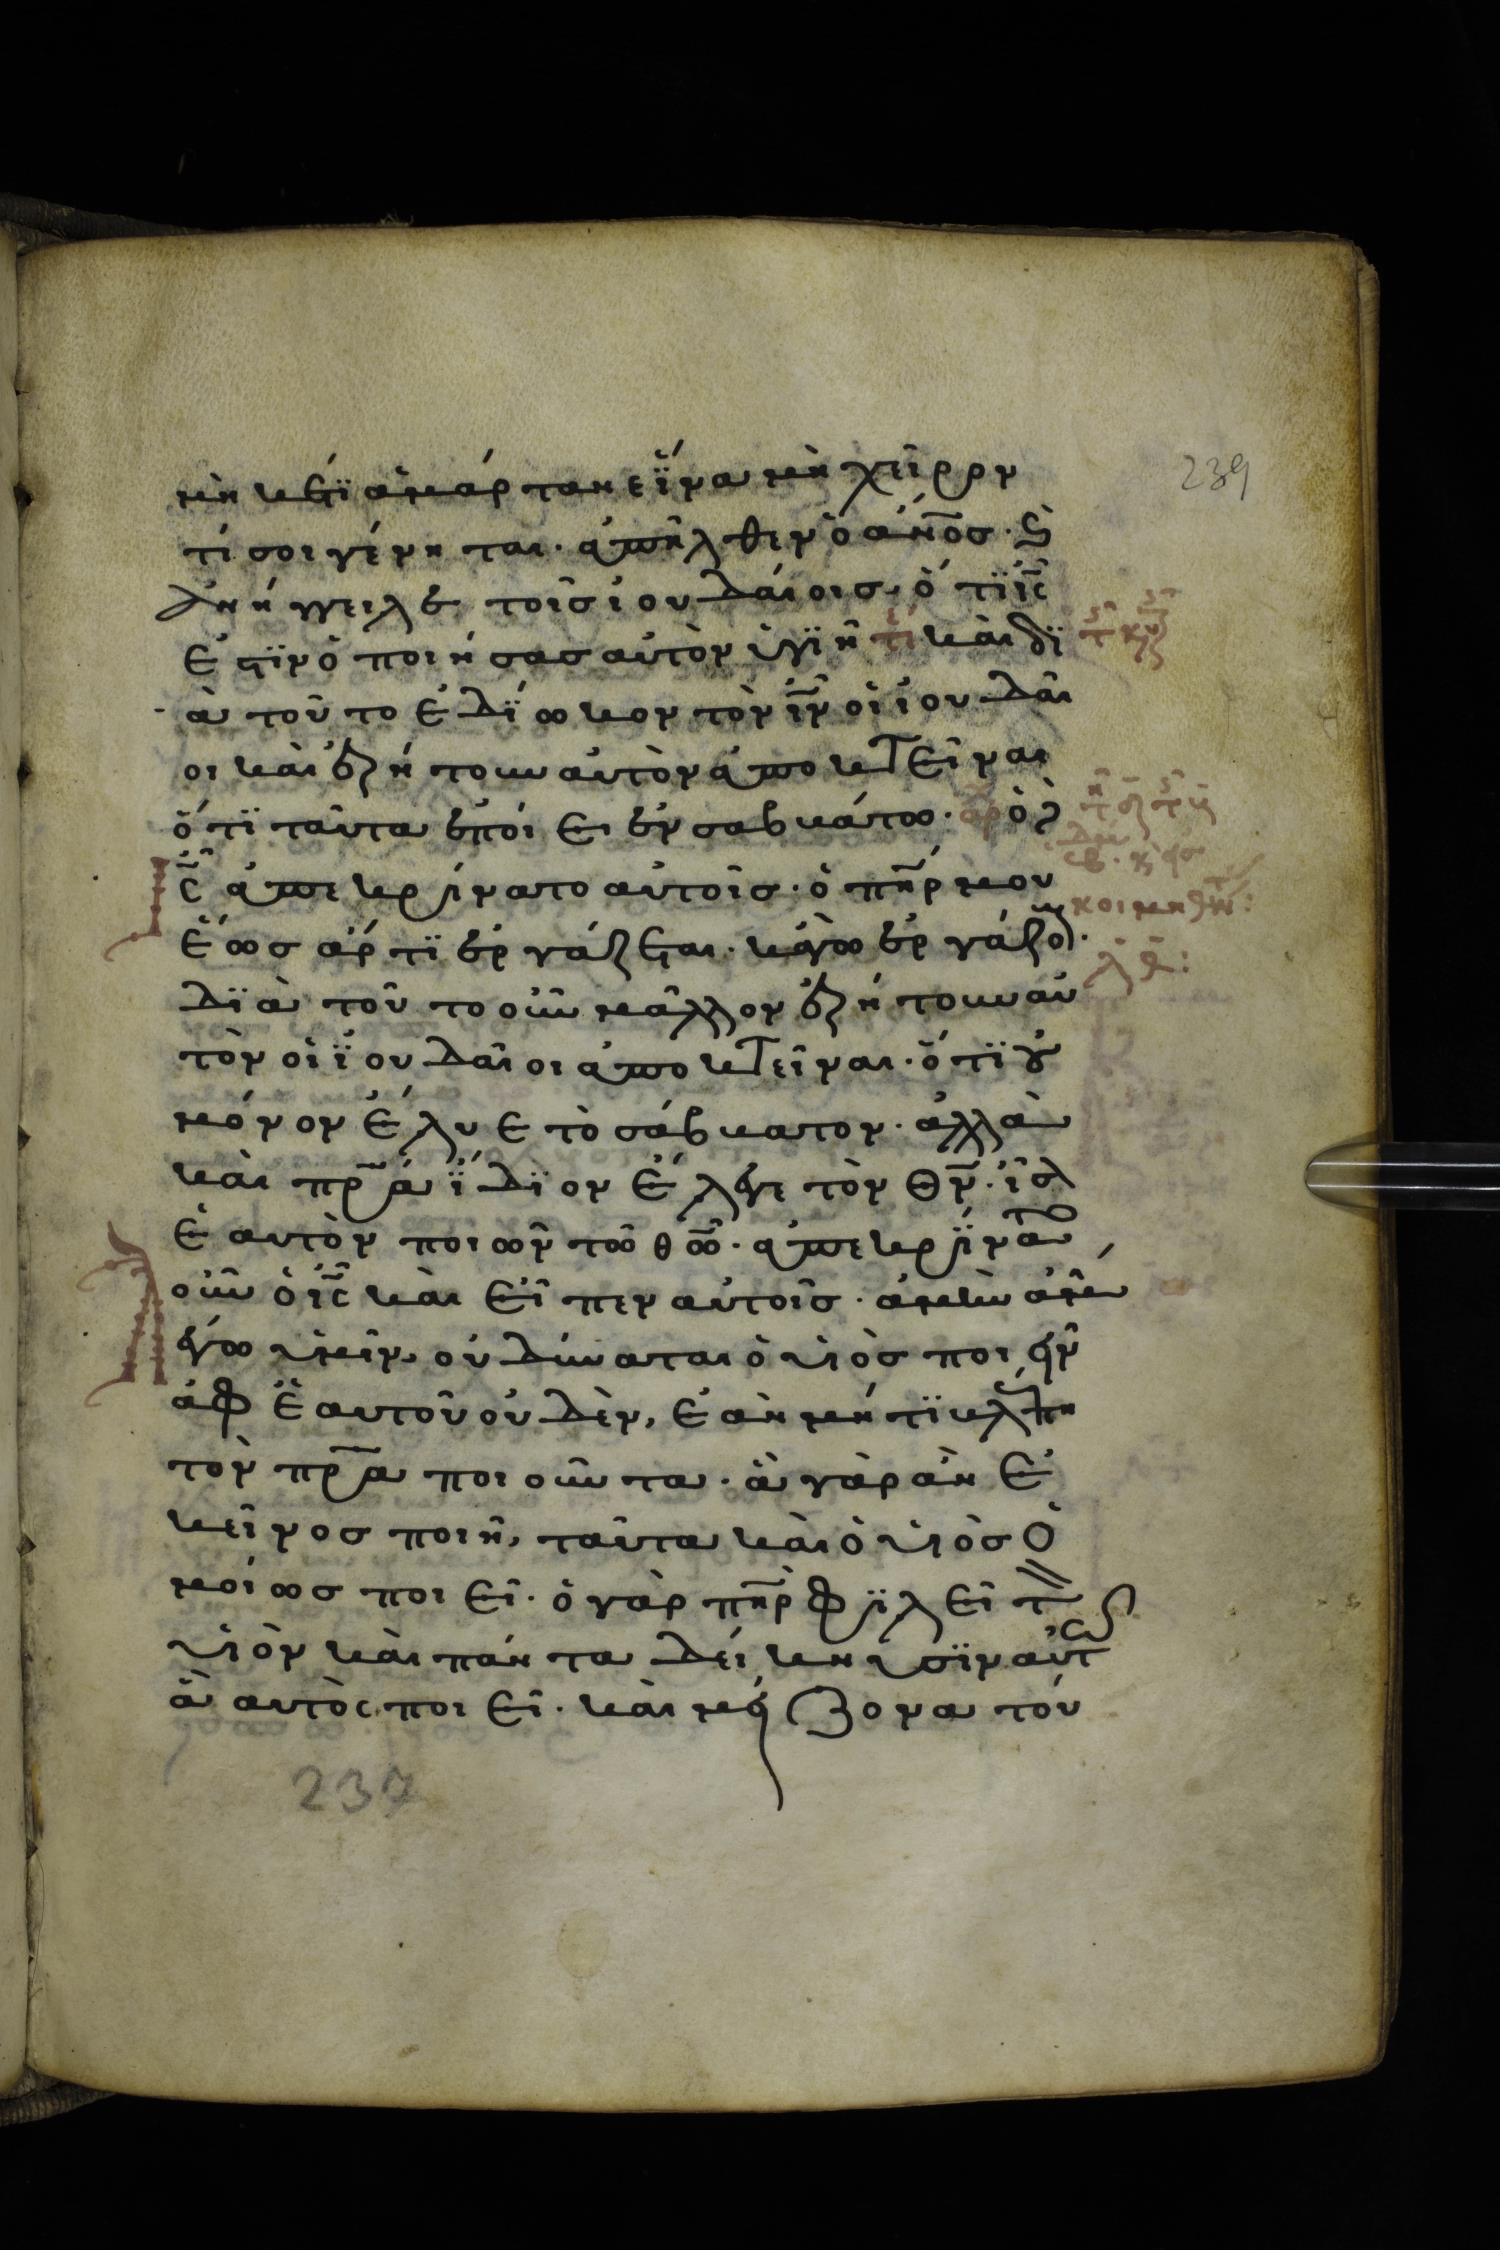 239
μὴ κέτϊ ἁμάρτανε ἵ̈να μὴ χεῖρον
τί σοι γένηται· ἀπῆλθεν ὁ ἄν̅ο̅ς· ϗ
ἀνήγγειλε τοῖς ἰουδαίοις, ὅτϊ ι̅ς̅
ἐστϊν ὁ ποιήσας αὐτὸν ὑγιῆ τέ καὶ δϊ
ὰ τοῦτο ἐδΐωκον τὸν ι̅ν̅ οἱ ἰουδαῖ
οι καὶ ἐζήτουν αὐτὸν ἀποκτεῖναι
ὅτϊ ταῦτα ἐποίει ἐν σαββάτω· αρ ὁ ι̅
ς̅ ἀπεκρίνατο αὐτοῖς· ὁ π̅η̅ρ̅ μου
ἕως ἄρτϊ ἐργάζεται· κἀγὼ ἐργάζομαι·
δϊὰ τοῦτο οὖν μᾶλλον ἐζήτουν αὐ
τὸν οἱ ἰ̈ουδαῖοι ἀποκτεῖναι· ὅτϊ οὐ
μόνον ἔλυε τὸ σάββατον· ἀλλὰ
καὶ π̅ρ̅α̅ ἴ̈δϊον ἔλεγε τὸν θ̅ν̅· ἶσ̅
ἑαυτὸν ποιῶν τῶ θ̅ω̅· ἀπεκρΐνατο
οὖν ὁ ι̅ς̅ καὶ εἶπεν αὐτοῖς· ἀμὴν ἀμὴν
λέγω ὑμῖν, οὐ δύναται ὁ υἱὸς ποιεῖν
ἀφ ἑαυτοῦ οὐδὲν, ἐὰν μή τϊ βλέπη
τὸν π̅ρ̅α̅ ποιοῦντα· ἃ γὰρ ἂν ἐ
κεῖνος ποιῆ, ταῦτα καὶ ὁ υἱὸς ὁ
μοίως ποιεῖ· ὁ γὰρ π̅η̅ρ̅ φϊλεῖ τ̅
υἱὸν καὶ πάντα δείκνυσϊν αὐτῶ
ἃ αὐτὸς ποιεῖ· καὶ μείζονα τού
237